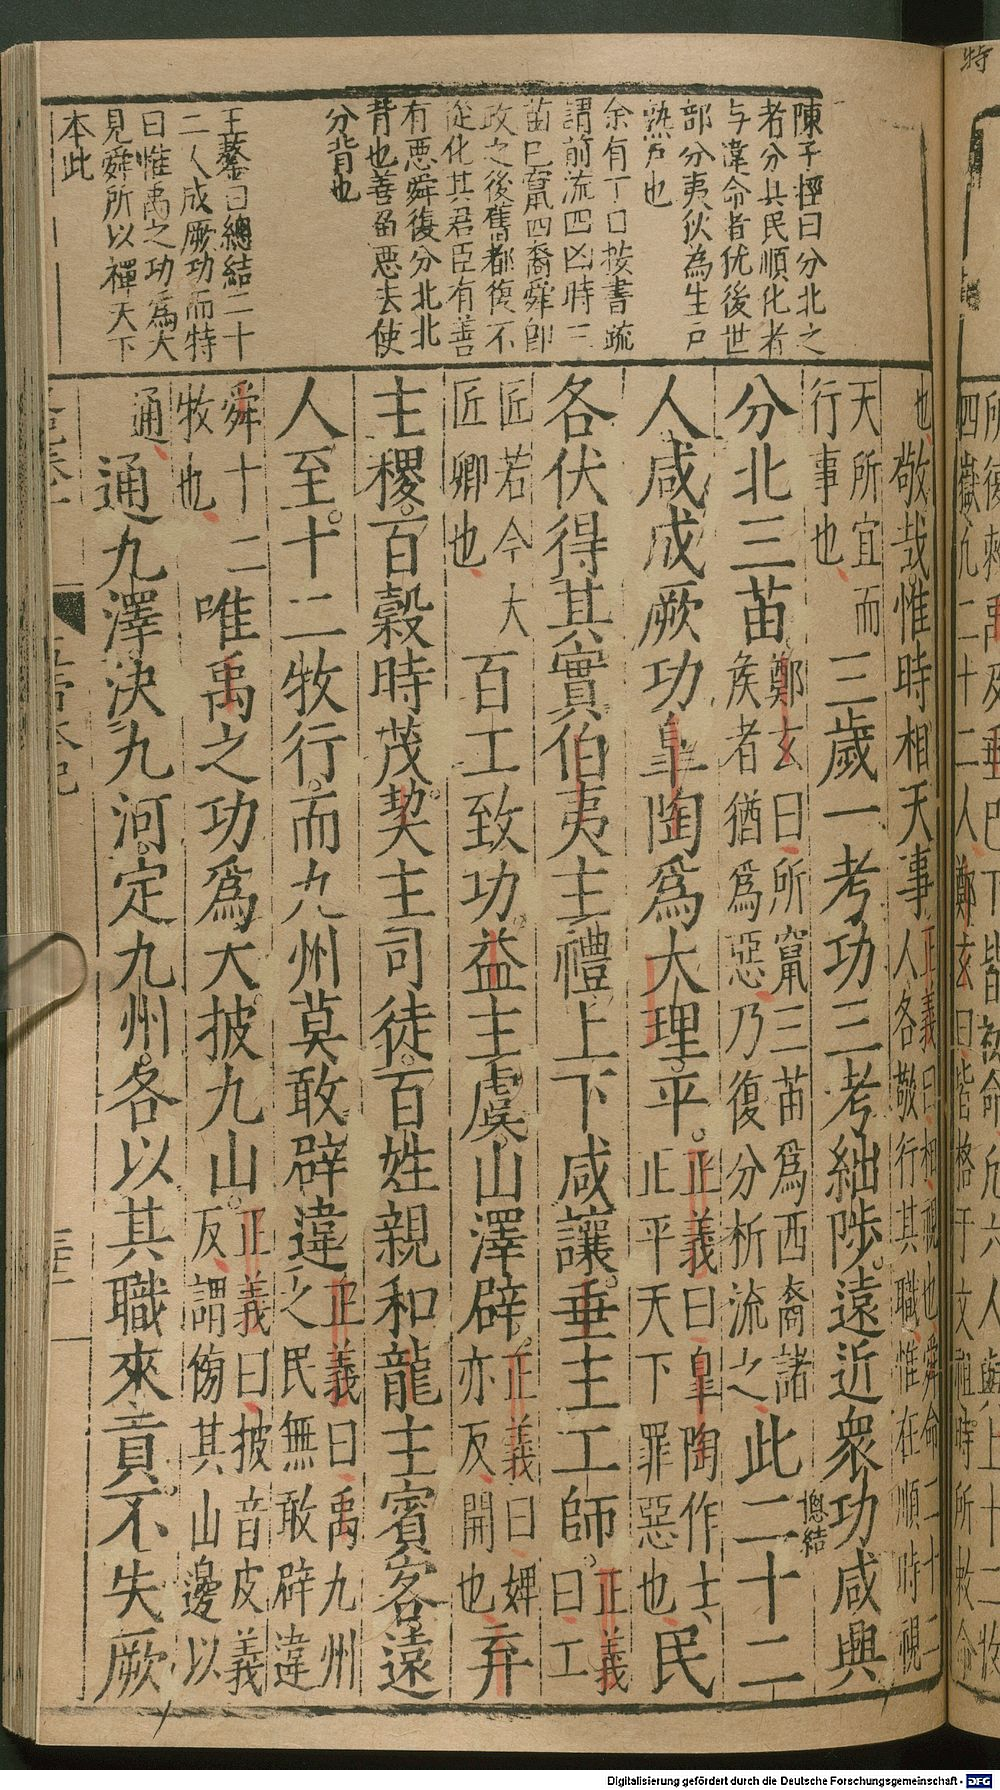 陳子桱曰分北之
者分其民順化者
与違命者优後世
部分夷狄為生戸
熟戸也
余有丁曰按書疏
謂前流四凶時三
苗已竄四裔舜即
政之後舊都復不
從化其君臣有善
有惡舜復分北北
背也善留惡去使
分背也
王鏊曰總結二十
二人成厥功而特
曰惟禹之功為大
見舜所以禪天下
本此
也敬哉惟時相天事正義曰相視也舜命二十二
人各敬行其職惟在順時視
天所宜而
行事也三歲一考功三考絀陟遠近衆功咸興
分北三苗鄭玄曰所竄三苗爲西裔諸
侯者猶爲惡乃復分析流之此二十二
總結
人咸成厥功皐陶爲大理平正義曰皐陶作士
正平天下罪惡也民
各伏得其實伯夷主禮上下咸讓垂主工師正義
曰工
匠若今大
匠卿也百工致功益主虞山澤辟正義曰婢
亦反開也弃
主稷百穀時茂契主司徒百姓親和龍主賓客遠
人至十二牧行而九州莫敢辟違正義曰禹九州
之民無敢辟違
舜十二
牧也唯禹之功爲大披九山正義曰披音皮義
反謂傍其山邊以
通通九澤決九河定九州各以其職來貢不失厥
三十一
特
四嶽九二十二人鄭玄曰皆格于文祖時所敕命
Digitalisierung gefördert durch die Deutsche Forschungsgemeinschaft - DFG